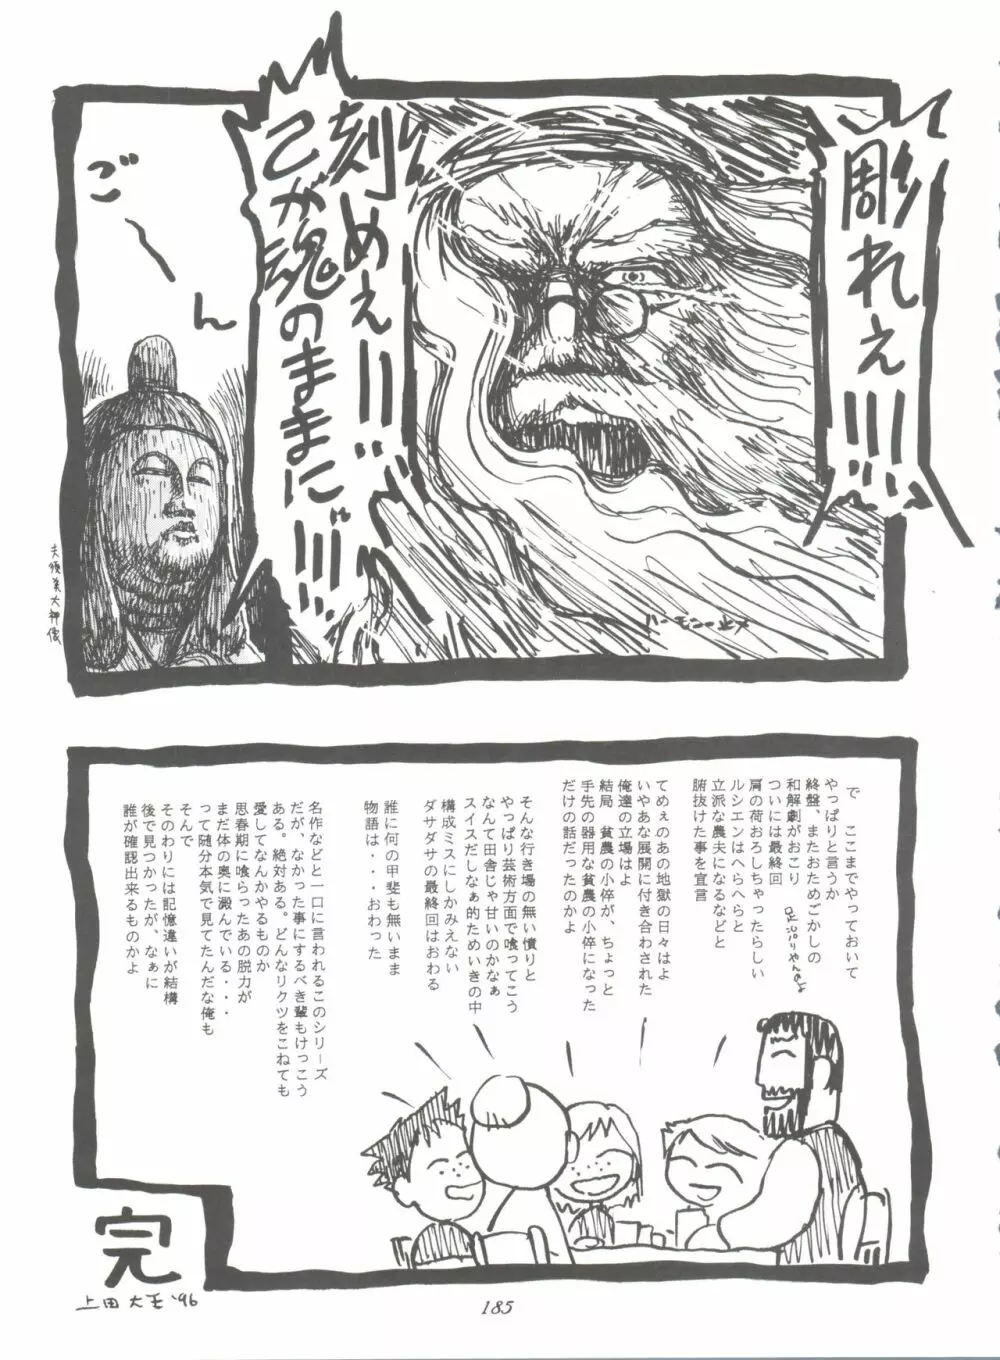 彫れぇ!!!
刻めぇ!!
己が魂のままに!!!
ごーん
夫須美大神像
で　ここまでやっておいて
やっぱりと言うか
終盤、またおためごかしの
和解劇がおこり
ついには最終回
肩の荷おろしちゃったらしい
ルシエンはへらへらと
立派な農夫になるなどと
腑抜けた事を宣言
てめぇのあの地獄の日々はよ
いやあな展開に付き合わされた
俺達の立場はよ
結局　貧農の小倅が、ちょっと
手先の器用な貧農の小倅になった
だけの話だったのかよ
そんな行き場の無い憤りと
やっぱり芸術方面で喰ってこう
なんて田舎じゃ甘いのかなぁ
スイスだしなぁ的ためいきの中
構成ミスにしかみえない
ダサダサの最終回はおわる
誰に何の甲斐も無いまま
物語は・・・おわった
名作などと一口に言われるこのシリーズ
だが、なかった事にするべき輩もけっこう
ある。絶対ある。どんなリクツをこねても
愛してなんかやるものか
思春期に喰らったあの脱力が
まだ体の奥に澱んでいる・・・
って随分本気で見てたんだな俺も
そんで
そのわりには記憶違いが結構
後で見つかったが、なぁに
誰が確認出来るものかよ
完
上田大王'96
185